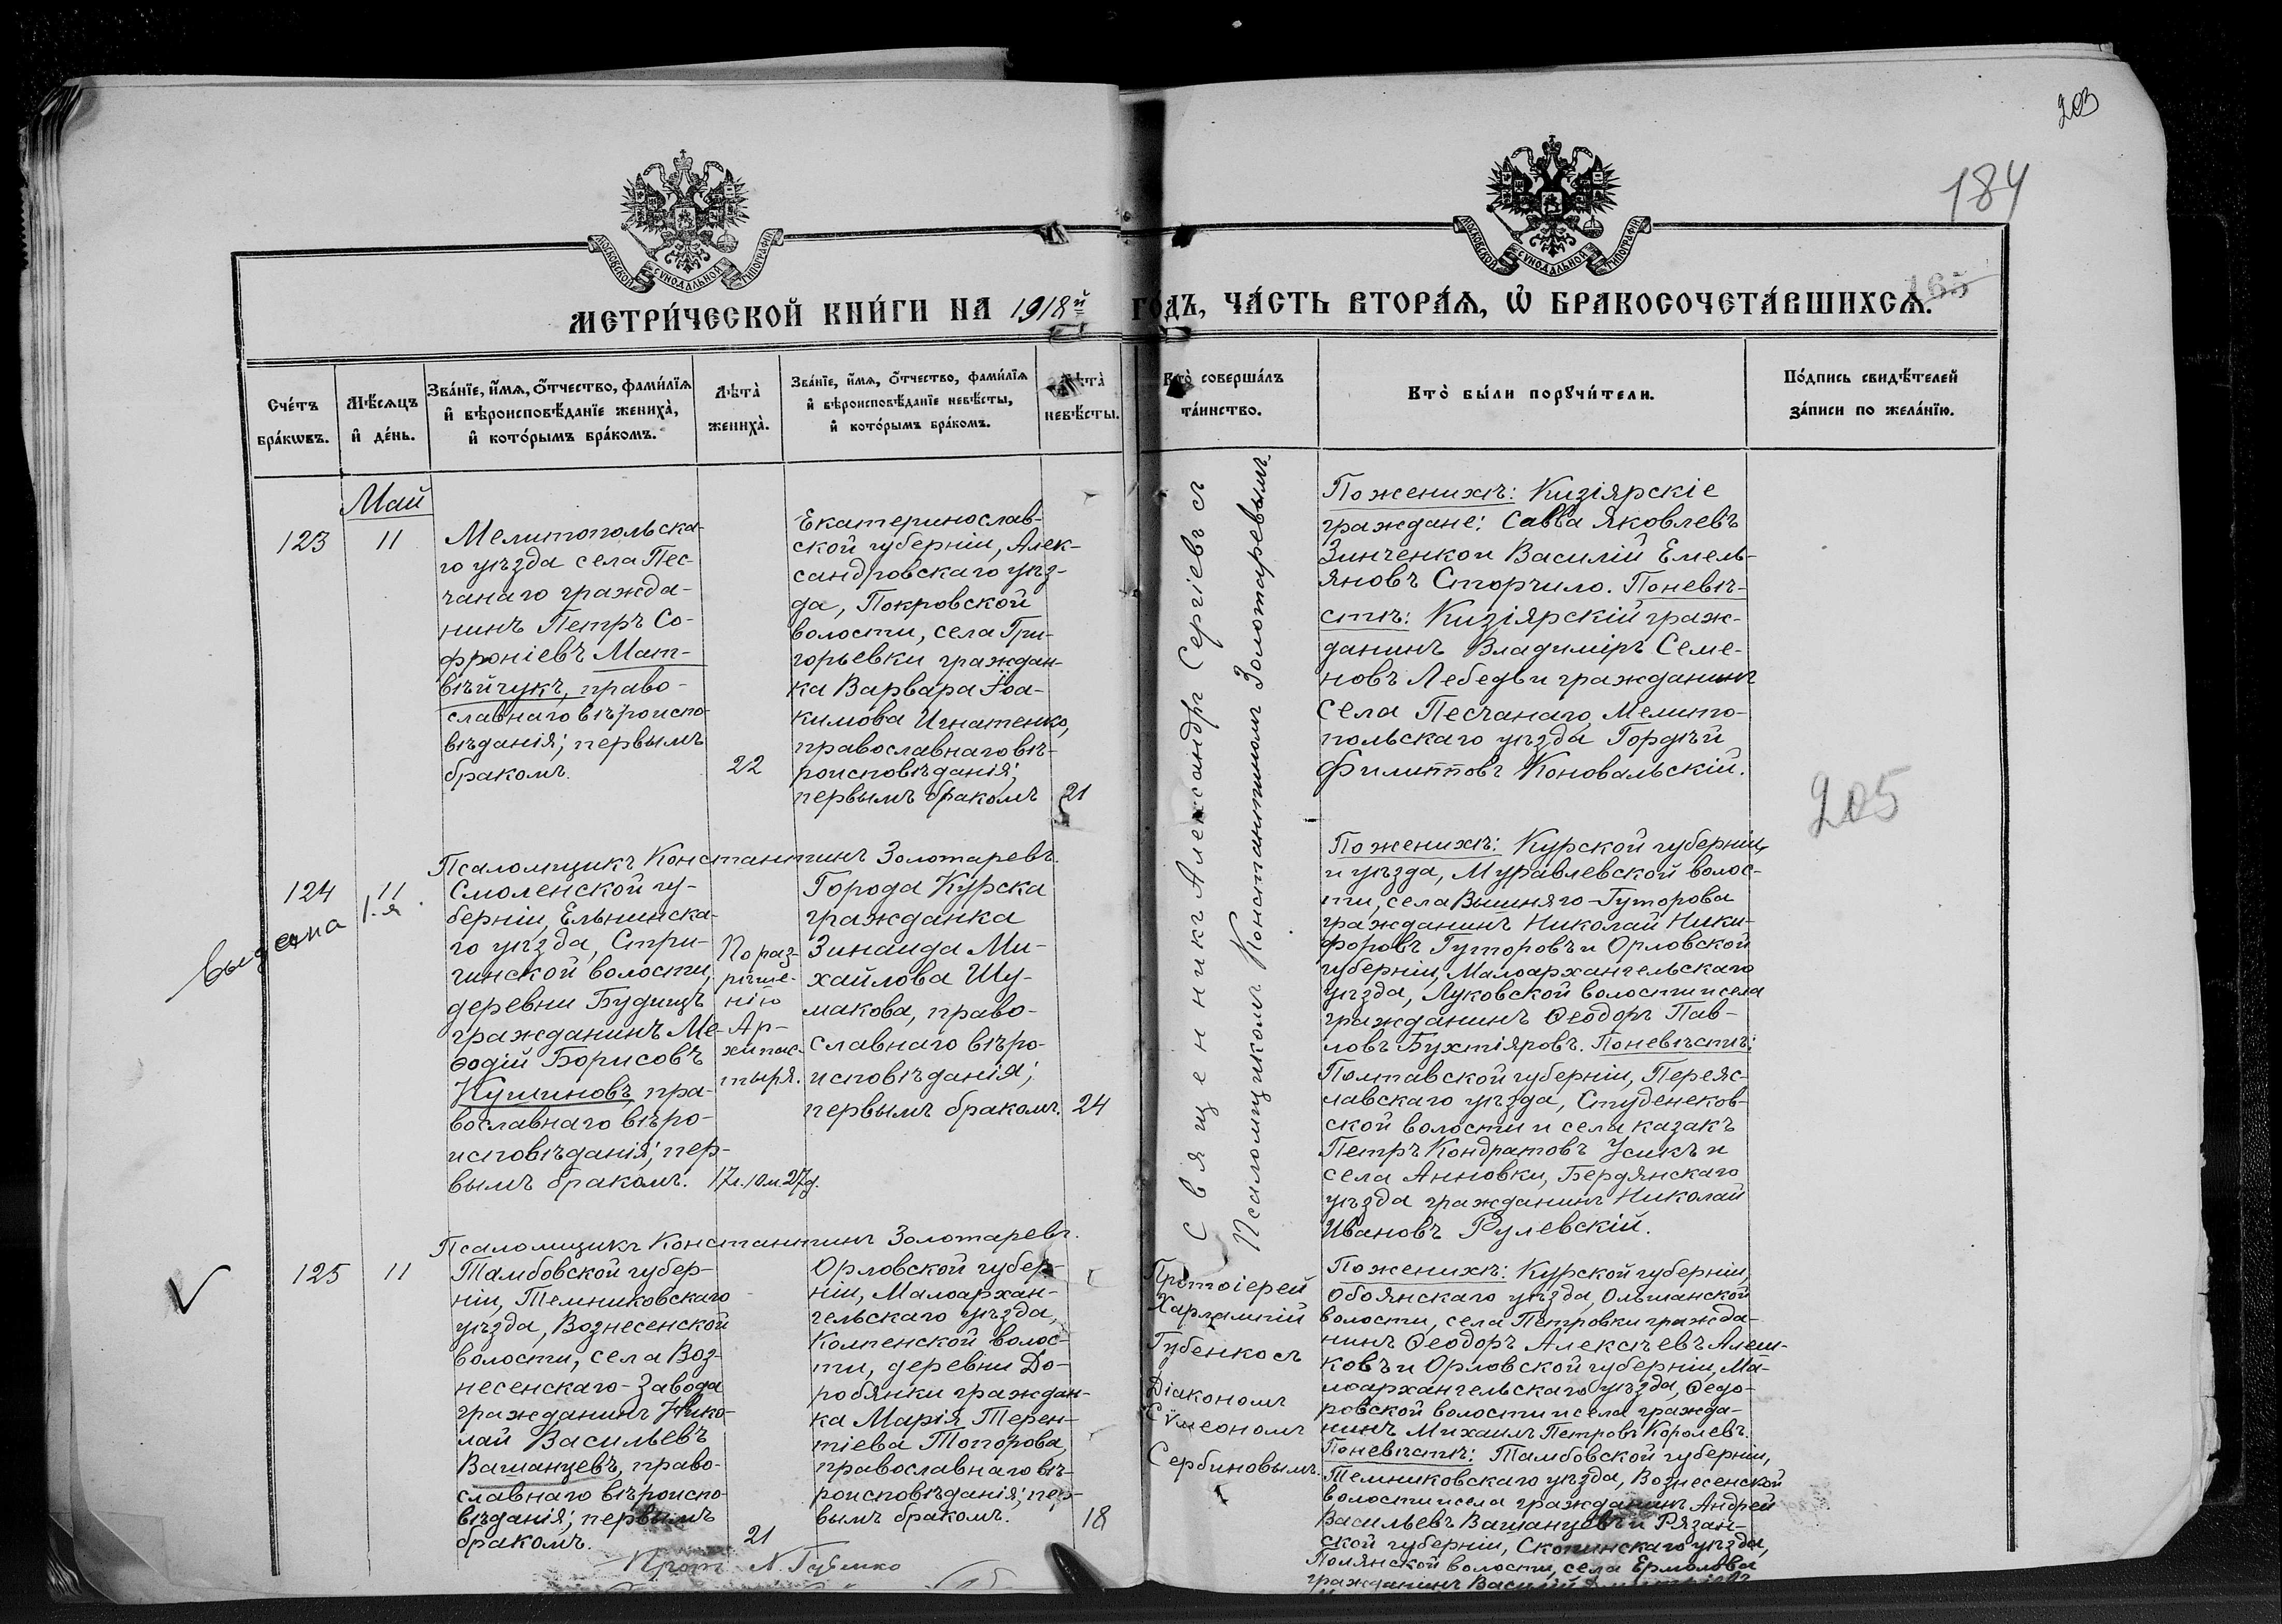 203
184
165
МОСКОВСКОЙ СѴНОДАЛЬНОЙ ТИПОГРАФІИ
МОСКОВСКОЙ СѴНОДАЛЬНОЙ ТИПОГРАФІИ
МЕТРИ́ЧЕСКОЙ КНИ́ГИ НА 1918й ГО́ДЪ, ЧА́СТЬ ВТОРА́Ѧ, Ѽ БРАКОСОЧЕТА́ВШИХСѦ.
Сче́тъ бра́кѡвъ.
Мѣ́сѧцъ и҆ де́нь.
Зва́нїе, и҆́мѧ, ѻ҆́тчество, фами́лїѧ
и҆ вѣроисповѣ́данїе жениха̀,
и҆ кото́рымъ бра́комъ.
Лѣта̀ жениха̀.
Зва́нїе, и҆́мѧ, ѻ҆́тчество, фами́лїѧ
и҆ вѣроисповѣ́данїе невѣ́сты,
и҆ кото́рымъ бра́комъ.
Лѣта̀ невѣ́сты.
Кто̀ соверша́лъ та́инство.
Кто̀ бы́ли порꙋчи́тели.
По́дпись свидѣ́телей
за́писи по жела́нїю.
Май
123
11
Мелитопольска-
го уѣзда села Пес-
чанаго гражда-
нинъ Петръ Со-
фроніевъ Мат-
вѣйчукъ, право-
славнаго вѣроиспо-
вѣданія; первымъ
бракомъ.
22
Екатеринослав-
ской губерніи, Алек-
сандровскаго уѣз-
да, Покровской
волости, села Гри-
горьевки граждан-
ка Варвара Іоа-
кимова Игнатенко,
православнаго вѣ-
роисповѣданія;
первымъ бракомъ
21
Священникъ Александръ Сергіевъ съ
Псаломщикомъ Константиномъ Золотаревымъ.
По женихѣ: Кизіярскіе
граждане: Савва Яковлевъ
Зинченко и Василій Емель-
яновъ Сторчило. По невѣ-
стѣ: Кизіярскій граж-
данинъ Владиміръ Семе-
новъ Лебедь и гражданинъ
села Песчанаго, Мелито-
польскаго уѣзда Гордѣй
Филипповъ Коновальскій.
205
Псаломщикъ Константинъ Золотаревъ.
124
11
выдана
1.я
Смоленской гу-
берніи, Ельнинска-
го уѣзда, Стри-
гинской волости,
деревни Будищъ
гражданинъ Ме-
ѳодій Борисовъ
Кушиновъ, пра-
вославнаго вѣро-
исповѣданія; пер-
вымъ бракомъ.
По раз-
рѣше-
нію
Ар-
хипас-
тыря.
17л. 10м. 27д.
Города Курска
гражданка
Зинаида Ми-
хайлова Шу-
макова, право-
славнаго вѣро-
исповѣданія;
первымъ бракомъ.
24
По женихѣ: Курской губерніи
и уѣзда, Муравлевской волос-
ти, села Вышняго-Гуторова
гражданинъ Николай Ники-
форовъ Гуторовъ и Орловской
губерніи, Малоархангельскаго
уѣзда, Луковской волости и села
гражданинъ Ѳеодоръ Пав-
ловъ Бухтіяровъ. По невѣстѣ:
Полтавской губерніи, Переяс-
лавскаго уѣзда, Студенеков-
ской волости и села казакъ
Петръ Кондратовъ Усикъ и
села Анновки, Бердянскаго
уѣзда гражданинъ Николай
Ивановъ Рулевскій.
Псаломщикъ Константинъ Золотаревъ.
125
11
Тамбовской губер-
ніи, Темниковскаго
уѣзда, Вознесенской
волости, села Воз-
несенскаго-Завода
гражданинъ Нико-
лай Васильевъ
Вашанцевъ, право-
славнаго вѣроиспо-
вѣданія; первымъ
бракомъ.
21
Орловской губер-
ніи, Малоархан-
гельскаго уѣзда,
Колпенской волос-
ти, деревни До-
робянки граждан-
ка Марія Терен-
тіева Топорова,
православнаго вѣ-
роисповѣданія; пер-
вымъ бракомъ.
18
Протоіерей
Харлампій
Губенко съ
Діакономъ
Сѵмеономъ
Сербиновымъ.
По женихѣ: Курской губерніи,
Обоянскаго уѣзда, Ольшанской
волости, села Петровки гражда-
нинъ Ѳеодоръ Алексѣевъ Алеш-
ковъ и Орловской губерніи, Ма-
лоархангельскаго уѣзда, Ѳедо-
ровской волости и села гражда-
нинъ Михаилъ Петровъ Королевъ.
По невѣстѣ: Тамбовской губерніи,
Темниковскаго уѣзда, Вознесенской
волости и села гражданинъ Андрей
Васильевъ Вашанцевъ и Рязан-
ской губерніи, Скопинскаго уѣзда,
Полянской волости, села Ермолова
гражданинъ Василій
Прот. Х. Губенко